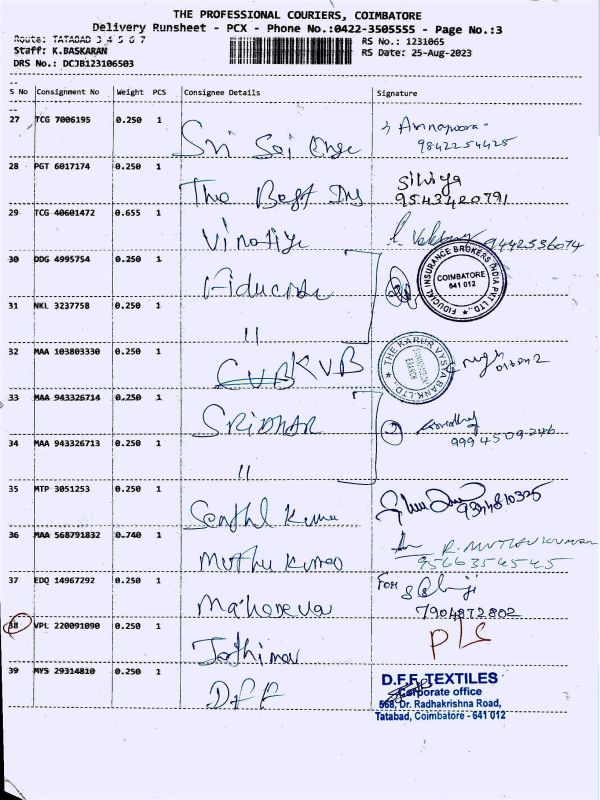 THE PROFESSIONAL COURIERS, COIMBATORE
Delivery Runsheet - PCX - Phone No.:0422-3505555 - Page No.:3
Route: TATABAD 3 4 5 6 7
RS No.: 1231065
Staff: K.BASKARAN
RS Date: 25-Aug-2023
DRS No.: DCJB123106503
S No Consignment No Weight PCS Consignee Details Signature
27 TCG 7006195 0.250 1
Sri Sai
9842254425
28 PGT 6017174 0.250 1
The Best Silviya
9543420791
29 TCG 40601472 0.655 1
9442536074
30 DDG 4995754 0.250 1
FIDUCIAL INSURANCE BROKERS INDIA PVT LTD.
COIMBATORE
641 012
31 NKL 3237758 0.250 1
"
32 MAA 103803330 0.250 1
CUB KVB
THE KARUR VYSYA BANK LTD.
33 MAA 943326714 0.250 1
SRIDHAR
34 MAA 943326713 0.250 1
"
35 MTP 3051253 0.250 1
Senthil Kumar
36 MAA 568791832 0.740 1
Muthu Kumar R. MUTHUKUMAR
9566354545
37 EDQ 14967292 0.250 1
For
7904872802
38 VPL 220091090 0.250 1
39 MYS 29314810 0.250 1
D.F.F
D.F.F. TEXTILES
Corporate office
568, Dr. Radhakrishna Road,
Tatabad, Coimbatore - 641 012